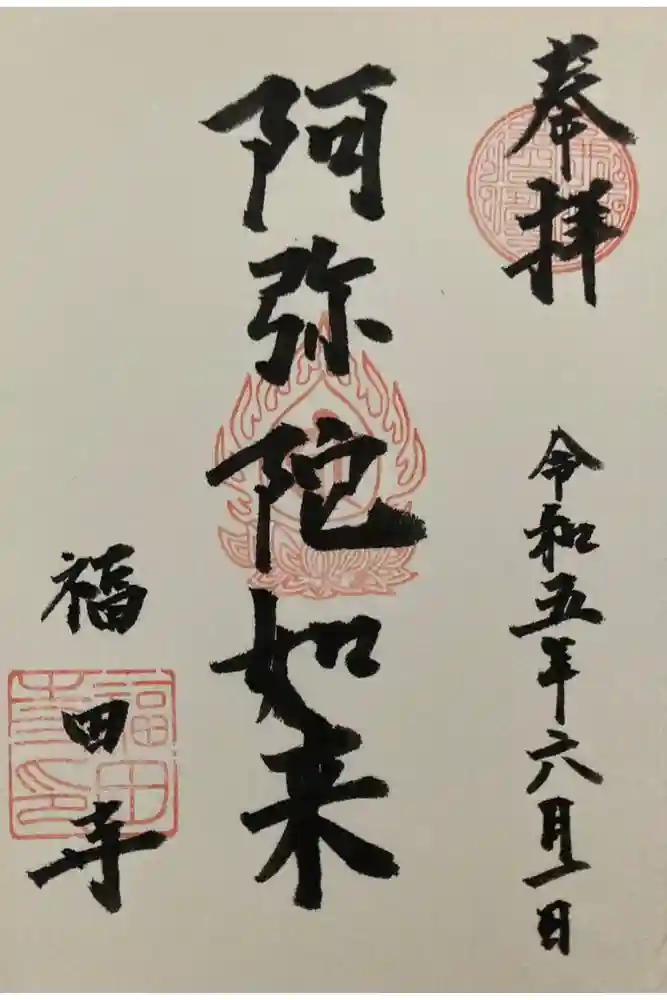 奉拝
令和五年六月一日
阿弥陀如来
福田寺
福田
寺印